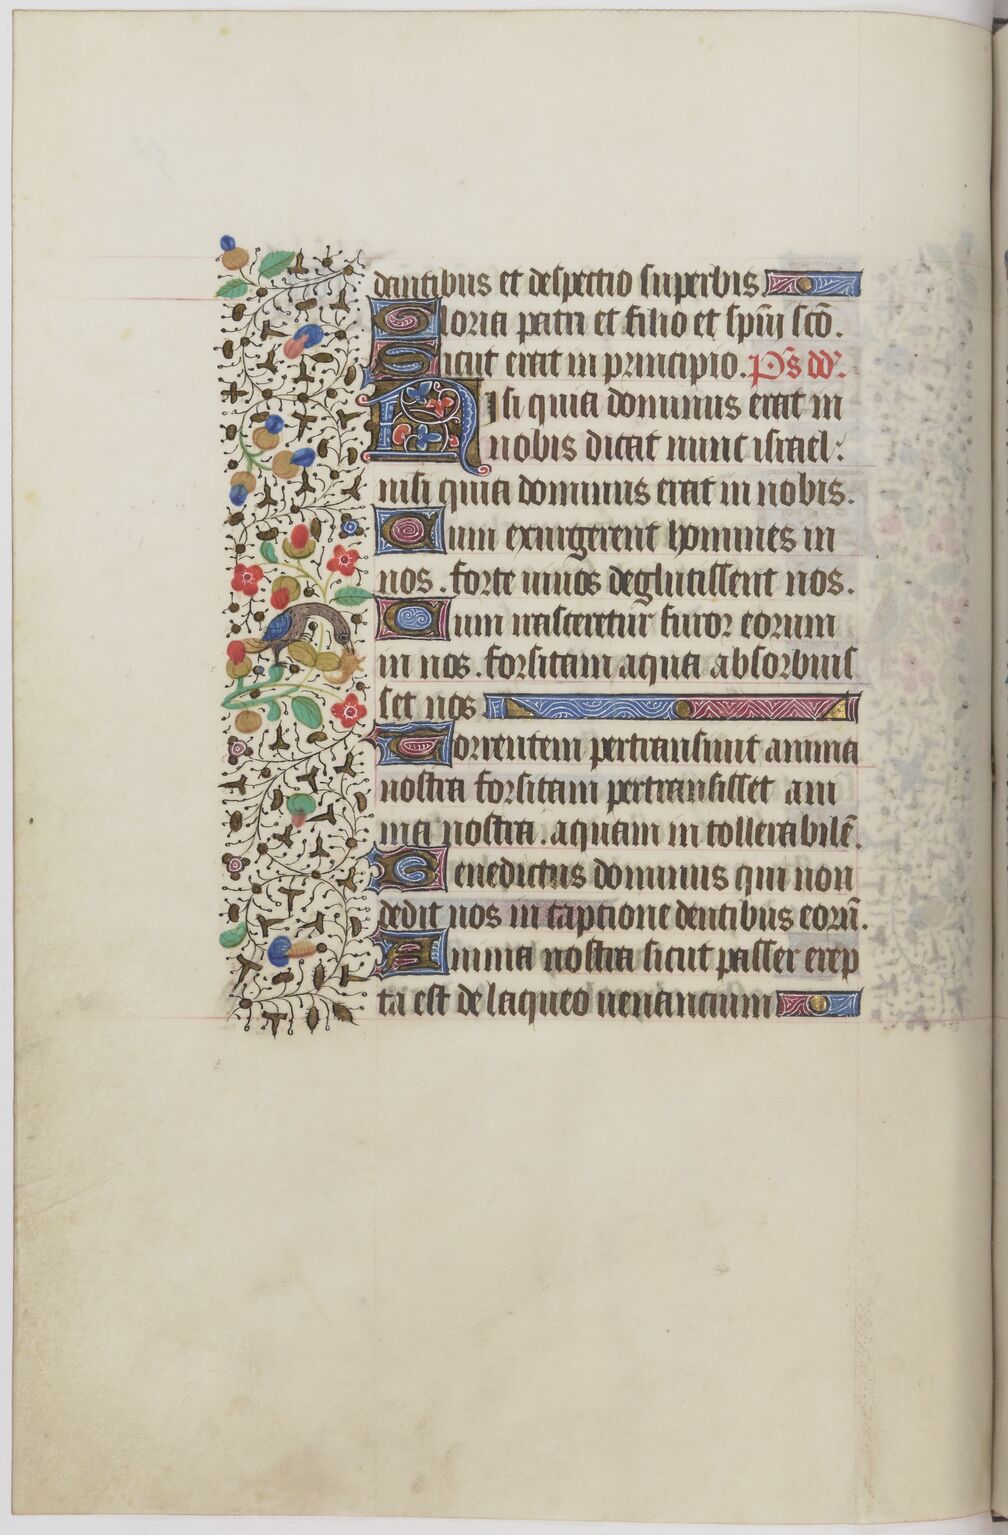 dantibus et despectio superbis
Gloria patri et filio et spūi scō.
Sicut erat in principio. Ps dd'.
Nisi quia dominus erat in
nobis dicat nunc israel:
nisi quia dominus erat in nobis.
Cum exurgerent homines in
nos. forte uiuos deglutissent nos.
Cum irasceretur furor eorum
in nos. forsitam aqua absorbuis
set nos
Torrentem pertransiuit anima
nostra forsitam pertransisset ani
ma nostra aquam in tollerabilē.
Benedictus dominus qui non
dedit nos in captione dentibus eorū.
Anima nostra sicut passer erep
ta est de laqueo uenancium